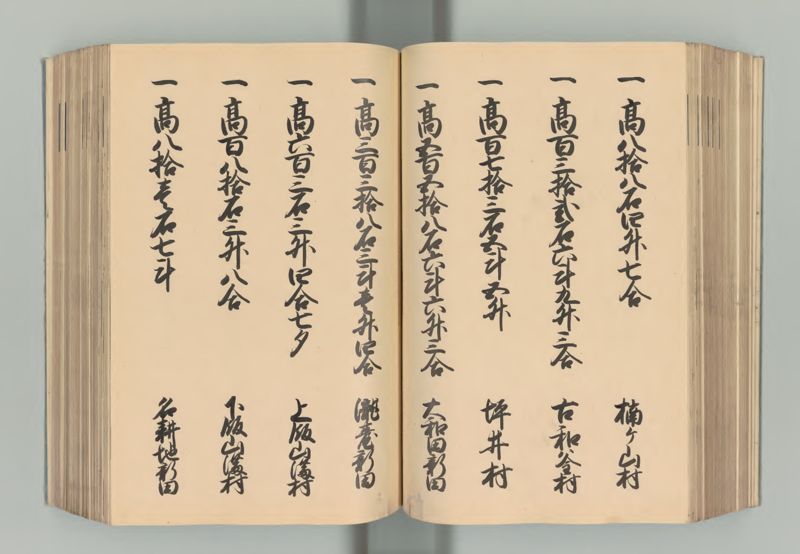 一 高八拾八石四升七合 楠ケ山村
一 高百三拾弐石六斗九升三合 古和釜村
一 高百七拾三石五斗五升 坪井村
一 高五百五拾八石六斗六升三合 大和田新田
一 高三百三拾八石三斗壱升四合 瀧台新田
一 高六百三石三升四合七夕 上飯山満村
一 高百八拾石三升八合 下飯山満村
一 高八拾壱石七斗 名耕地新田